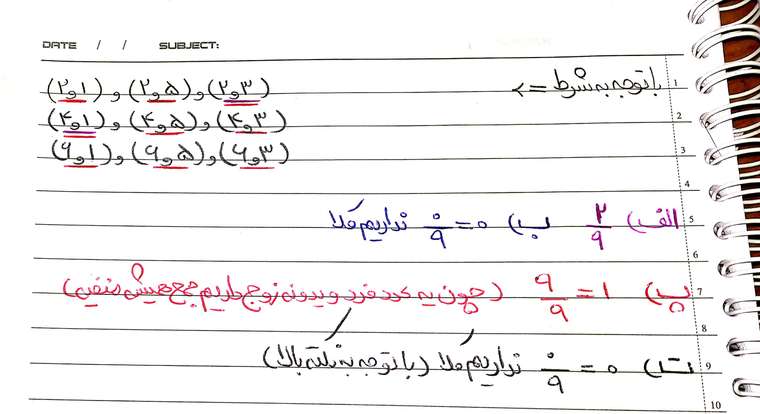 DATE / / SUBJECT:
با توجه به شرط => (۲و۱) و (۲و۵) و (۲و۳) 1
(۴و۱) و (۴و۵) و (۴و۳) 2
(۶و۱) و (۶و۵) و (۶و۳) 3
4
الف) ۲/۹ ب) ۰/۹ = ۰ نداریم کلا 5
6
پ) ۹/۹ = ۱ (چون یه عدد فرد و یدونه زوج داریم جمع همیشه) 7
8
ت) ۰/۹ = ۰ نداریم کلا (با توجه به نکته بالا) 9
10